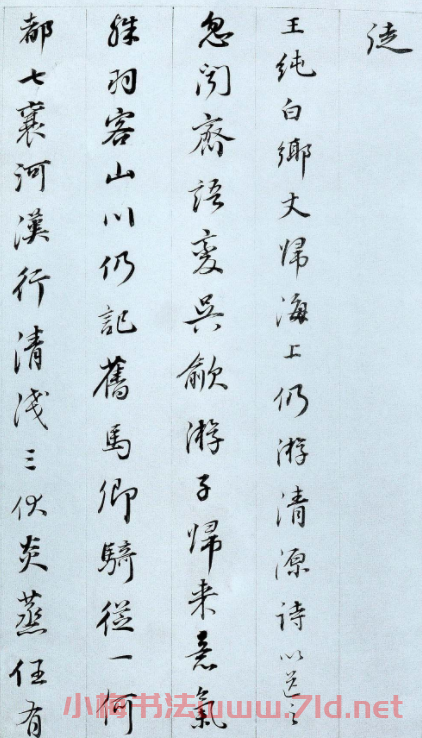 王純白鄉丈歸海上仍游清源詩以送之
忽聞齊語變吳歈游子歸来意氣
殊羽客山川仍記舊馬卿騎從一何
都七襄河漢行清淺三伏炎蒸任有
小梅书法:www.7ld.net